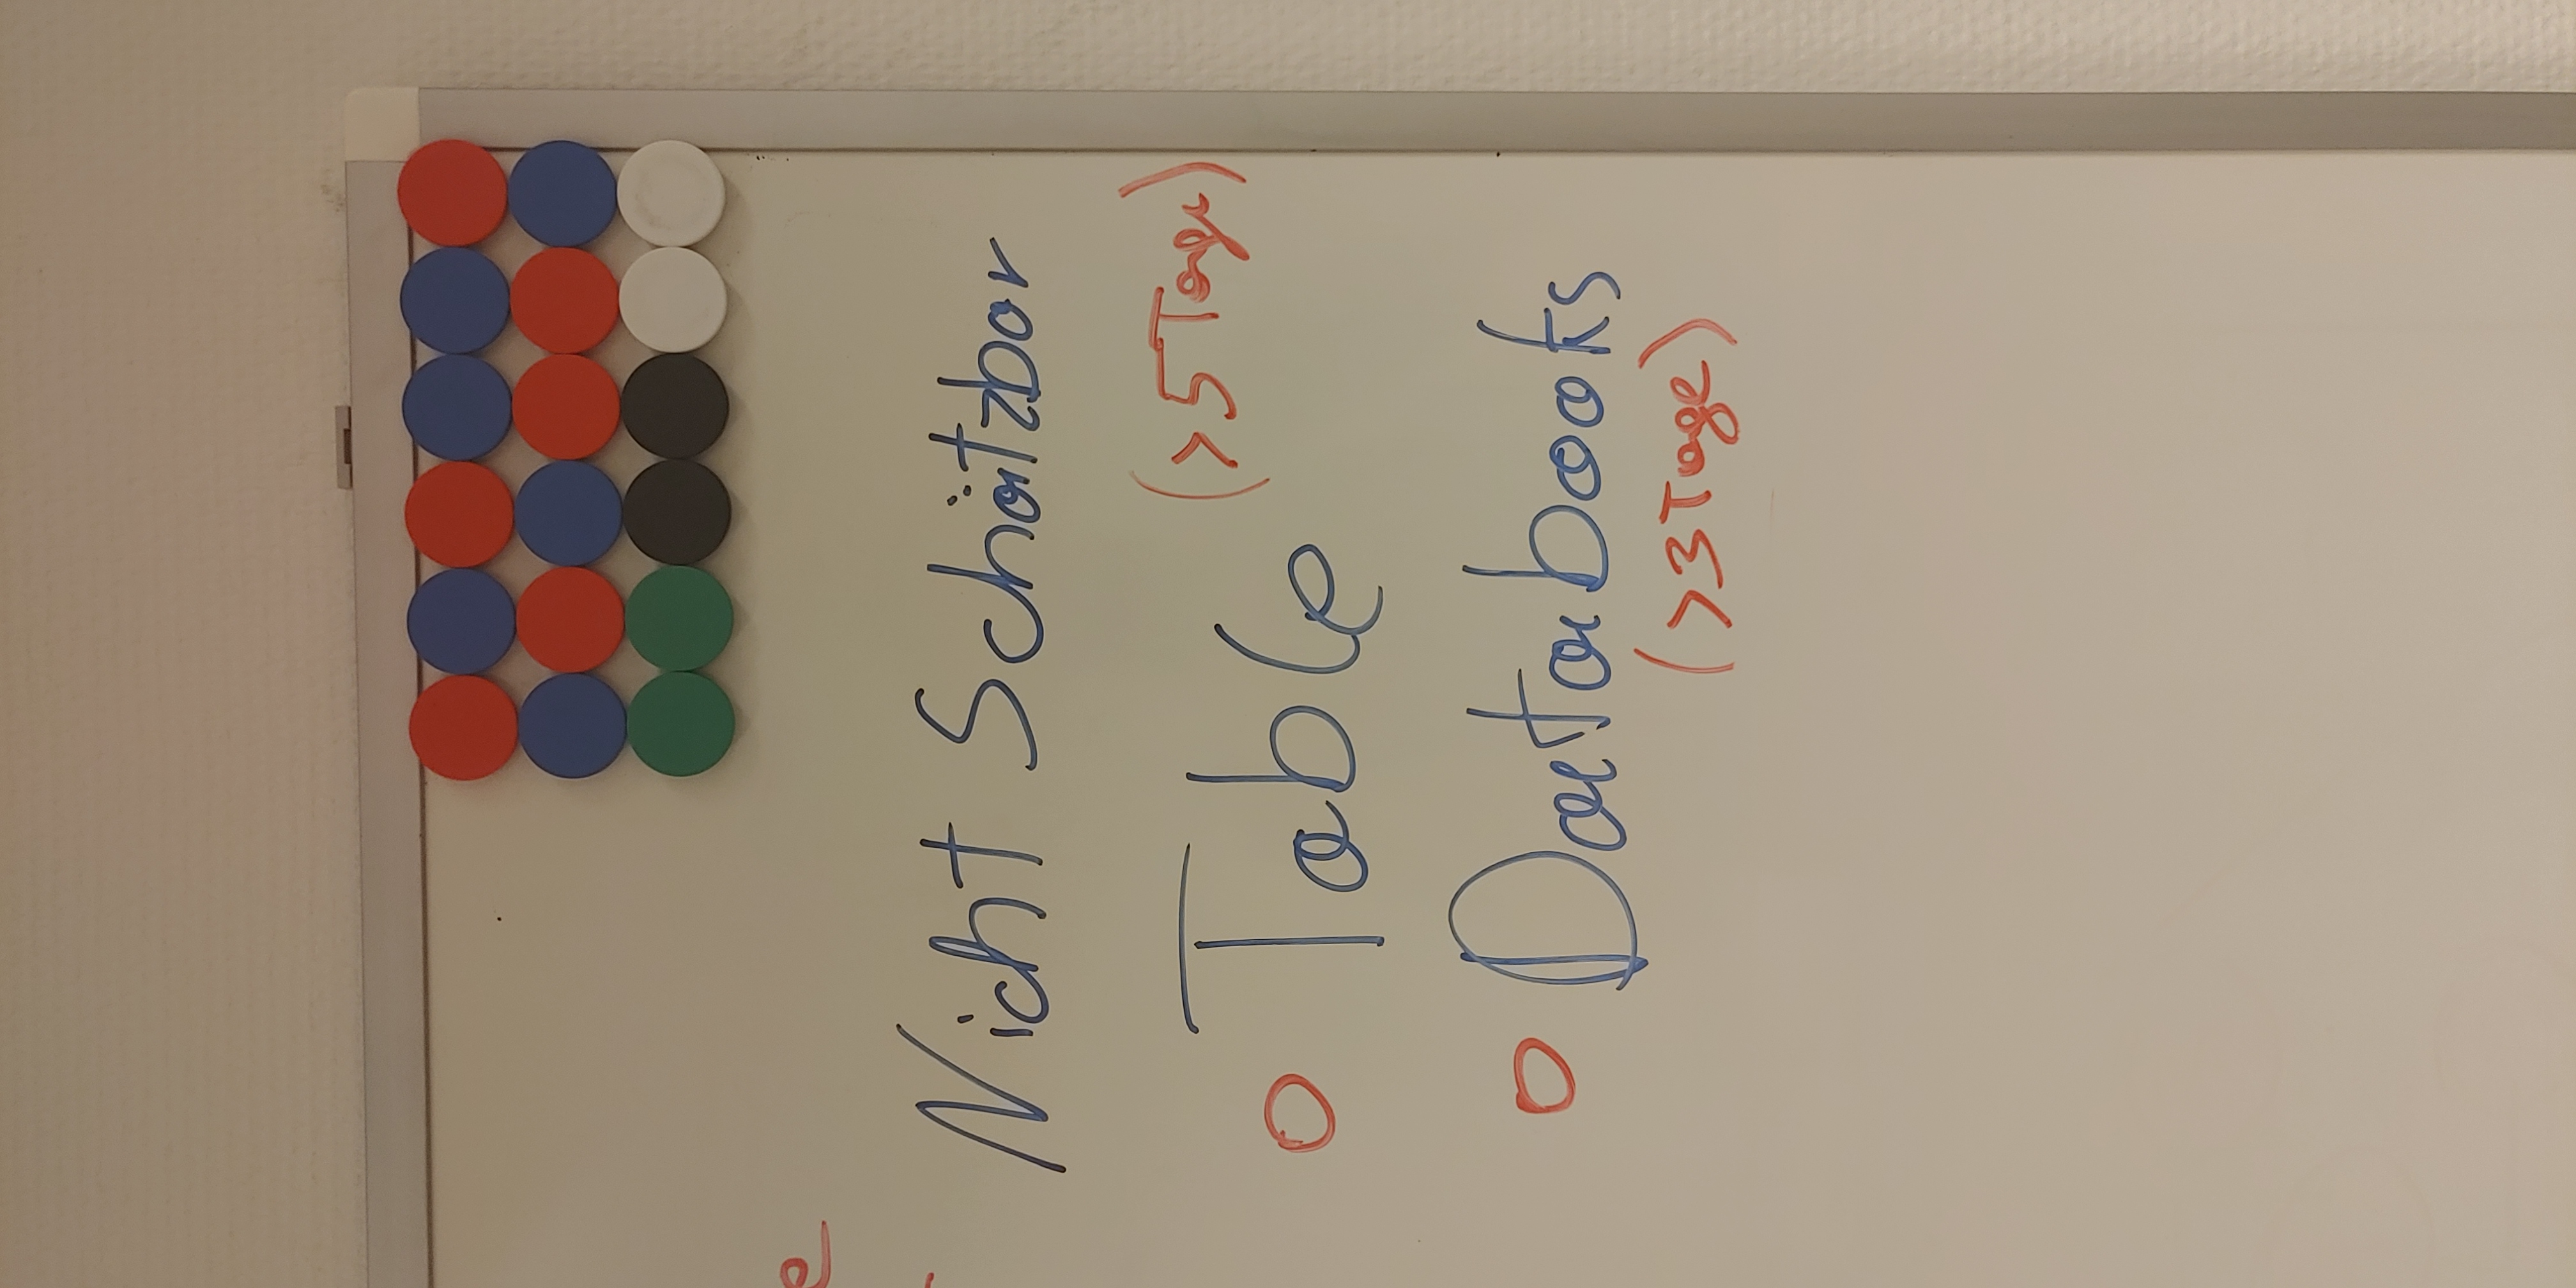 Nicht Schätzbar
(>5 Tage)
Table
Databooks
(>3 Tage)